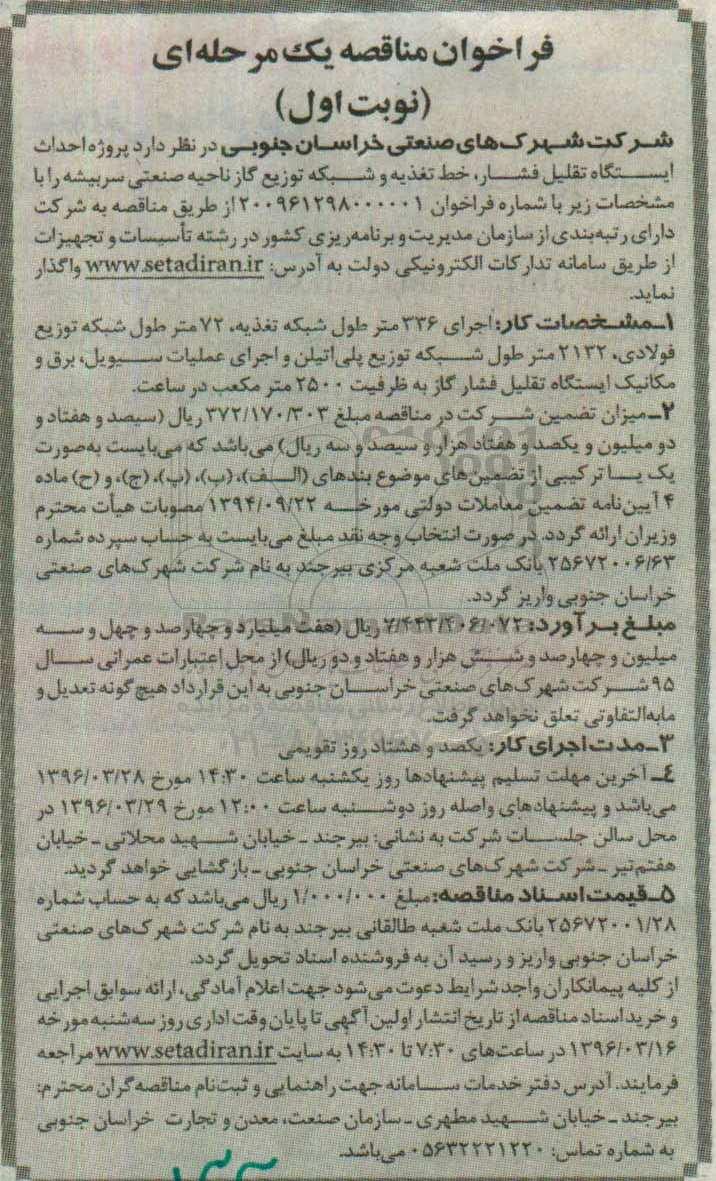 فراخوان مناقصه یک مرحله‌ای
(نوبت اول)
شرکت شهرک‌های صنعتی خراسان جنوبی در نظر دارد پروژه احداث
ایستگاه تقلیل فشار، خط تغذیه و شبکه توزیع گاز ناحیه صنعتی سربیشه را با
مشخصات زیر با شماره فراخوان ۲۰۰۹۶۱۲۹۸۰۰۰۰۰۱ از طریق مناقصه به شرکت
دارای رتبه‌بندی از سازمان مدیریت و برنامه‌ریزی کشور در رشته تأسیسات و تجهیزات
از طریق سامانه تدارکات الکترونیکی دولت به آدرس: www.setadiran.ir واگذار
نماید.
۱ـ مشخصات کار: اجرای ۳۳۶ متر طول شبکه تغذیه، ۷۲ متر طول شبکه توزیع
فولادی، ۲۱۳۲ متر طول شبکه توزیع پلی‌اتیلن و اجرای عملیات سیویل، برق و
مکانیک ایستگاه تقلیل فشار گاز به ظرفیت ۲۵۰۰ متر مکعب در ساعت.
۲ـ میزان تضمین شرکت در مناقصه مبلغ ۳۷۲/۱۷۰/۳۰۳ ریال (سیصد و هفتاد و
دو میلیون و یکصد و هفتاد هزار و سیصد و سه ریال) می‌باشد که می‌بایست به‌صورت
یک یا ترکیبی از تضمین‌های موضوع بندهای (الف)، (ب)، (پ)، (ج)، و (ح) ماده
۴ آیین‌نامه تضمین معاملات دولتی مورخه ۱۳۹۴/۰۹/۲۲ مصوبات هیأت محترم
وزیران ارائه گردد. در صورت انتخاب وجه نقد مبلغ می‌بایست به حساب سپرده شماره
۲۵۶۷۲۰۰۶/۶۳ بانک ملت شعبه مرکزی بیرجند به نام شرکت شهرک‌های صنعتی
خراسان جنوبی واریز گردد.
مبلغ برآورد: ۷/۴۴۳/۴۰۶/۰۷۲ ریال (هفت میلیارد و چهارصد و چهل و سه
میلیون و چهارصد و شش هزار و هفتاد و دو ریال) از محل اعتبارات عمرانی سال
۹۵ شرکت شهرک‌های صنعتی خراسان جنوبی به این قرارداد هیچ گونه تعدیل و
مابه‌التفاوتی تعلق نخواهد گرفت.
۳ـ مدت اجرای کار: یکصد و هشتاد روز تقویمی
۴ـ آخرین مهلت تسلیم پیشنهادها روز یکشنبه ساعت ۱۴:۳۰ مورخ ۱۳۹۶/۰۳/۲۸
می‌باشد و پیشنهادهای واصله روز دوشنبه ساعت ۱۲:۰۰ مورخ ۱۳۹۶/۰۳/۲۹ در
محل سالن جلسات شرکت به نشانی: بیرجند ـ خیابان شهید محلاتی ـ خیابان
هفتم تیر ـ شرکت شهرک‌های صنعتی خراسان جنوبی ـ بازگشایی خواهد گردید.
۵ـ قیمت اسناد مناقصه: مبلغ ۱/۰۰۰/۰۰۰ ریال می‌باشد که به حساب شماره
۲۵۶۷۲۰۰۱/۲۸ بانک ملت شعبه طالقانی بیرجند به نام شرکت شهرک‌های صنعتی
خراسان جنوبی واریز و رسید آن به فروشنده اسناد تحویل گردد.
از کلیه پیمانکاران واجد شرایط دعوت می‌شود جهت اعلام آمادگی، ارائه سوابق اجرایی
و خرید اسناد مناقصه از تاریخ انتشار اولین آگهی تا پایان وقت اداری روز سه‌شنبه مورخه
۱۳۹۶/۰۳/۱۶ در ساعت‌های ۷:۳۰ تا ۱۴:۳۰ به سایت www.setadiran.ir مراجعه
فرمایند. آدرس دفتر خدمات سامانه جهت راهنمایی و ثبت‌نام مناقصه‌گران محترم:
بیرجند ـ خیابان شهید مطهری ـ سازمان صنعت، معدن و تجارت خراسان جنوبی
به شماره تماس: ۰۵۶۳۲۲۲۱۲۲۰ می‌باشد.